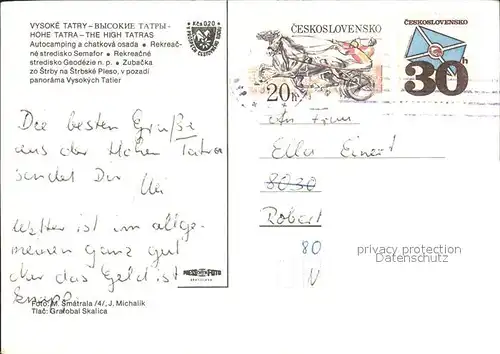 VYSOKÉ TATRY – ВЫСОКИЕ ТАТРЫ –
HOHE TATRA – THE HIGH TATRAS
Autocamping a chatková osada ● Rekreač-
né stredisko Semafor ● Rekreačné
stredisko Geodézie n. p. ● Zubačka
zo Štrby na Štrbské Pleso, v pozadí
panoráma Vysokých Tatier
Kčs 0,20
ČESKOSLOVENSKO
20h
ČESKOSLOVENSKO
30h
Die besten Grüße
aus der Hohen Tatra
sendet Dir
Uli
Wetter ist im allge-
meinen ganz gut
Nur das Geld ist
knapp.
An Frau
Ella
8030
Robert
80
privacy protection
Postkarten.DE
Foto: M. Smatrala /4/, J. Michalík
Tlač: Grafobal Skalica